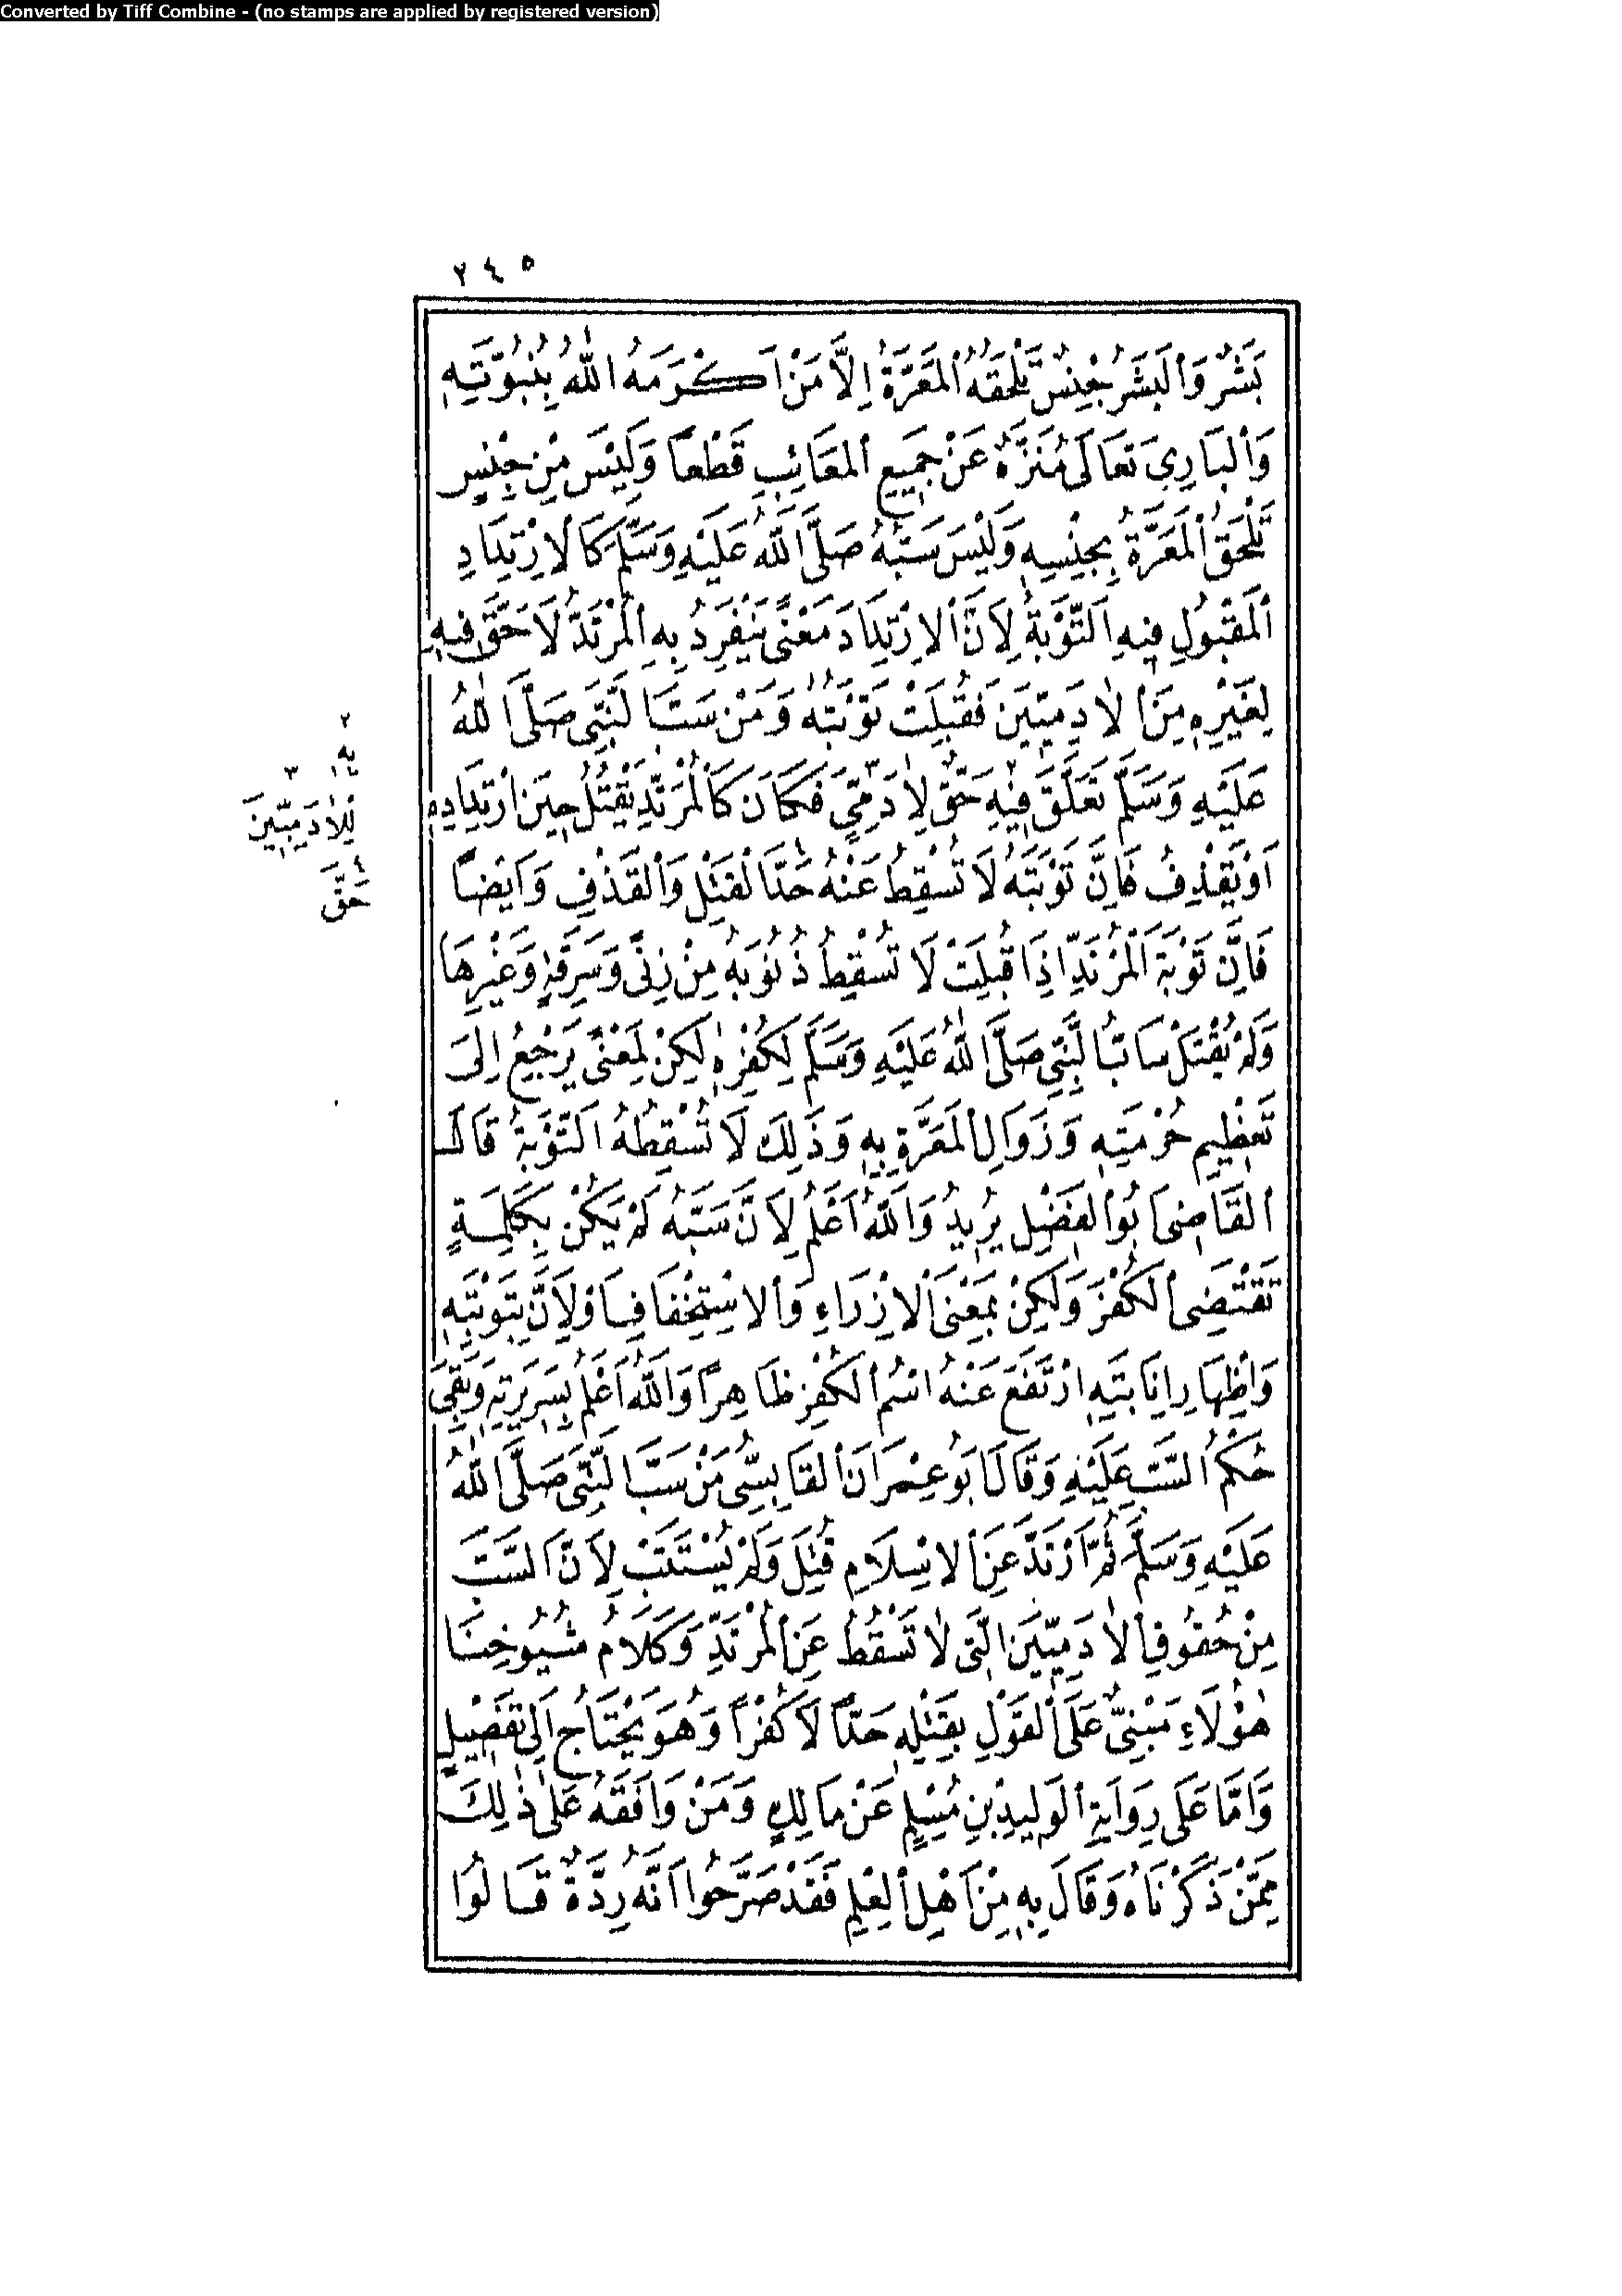 Converted by Tiff Combine - (no stamps are applied by registered version)
٢٤٥
بَشَرٌ وَالْبَشَرُ جِنْسٌ تَلْحَقُهُ الْمَعَرَّةُ اِلَّا مَنْ اَكْرَمَهُ اللهُ بِنُبُوَّتِهِ
وَالْبَارِى تَعَالَى مُنَزَّهٌ عَنْ جَمِيعِ الْمَعَائِبِ قَطْعاً وَلَيْسَ مِنْ جِنْسٍ
تَلْحَقُ الْمَعَرَّةُ بِجِنْسِهِ وَلَيْسَ سَبُّهُ صَلَّى اللهُ عَلَيْهِ وَسَلَّمَ كَالْارْتِدَادِ
الْمَقْبُولِ فِيهِ التَّوْبَةُ لِاَنَّ الْارْتِدَادَ مَعْنًى يَنْفَرِدُ بِهِ الْمُرْتَدُّ لَا حَقَّ فِيهِ
لِغَيْرِهِ مِنَ الْاٰدَمِيّينَ فَقُبِلَتْ تَوْبَتُهُ وَمَنْ سَبَّ النَّبِىَّ صَلَّى اللهُ
عَلَيْهِ وَسَلَّمَ تَعَلَّقَ فِيهِ ٢ حَقٌّ لِاٰدَمِىٍّ ٣ فَكَانَ كَالْمُرْتَدِّ يَقْتُلُ حِينَ ارْتِدَادِهِ
اَوْ يَقْذِفُ فَاِنَّ تَوْبَتَهُ لَا تُسْقِطُ عَنْهُ حَدَّ ٤ الْقَتْلِ وَالْقَذْفِ وَاَيْضاً
فَاِنَّ تَوْبَةَ الْمُرْتَدِّ اِذَا قُبِلَتْ لَا تُسْقِطُ ذُنُوبَهُ مِنْ زِنًى وَسَرِقَةٍ وَغَيْرِهَا
وَلَمْ يُقْتَلْ سَابُّ النَّبِىِّ صَلَّى اللهُ عَلَيْهِ وَسَلَّمَ لِكُفْرِهِ لٰكِنْ لِمَعْنًى يَرْجِعُ اِلَى
تَعْظِيمِ حُرْمَتِهِ وَزَوَالِ الْمَعَرَّةِ بِهِ وَذَلِكَ لَا تُسْقِطُهُ التَّوْبَةُ قَالَ
الْقَاضِى اَبُو الْفَضْلِ يُرِيدُ وَاللهُ اَعْلَمُ لِاَنَّ سَبَّهُ لَمْ يَكُنْ بِكَلِمَةٍ
تَقْتَضِى الْكُفْرَ وَلَكِنْ بِمَعْنَى الْازْرَاءِ وَالْاسْتِخْفَافِ اَوْ لِاَنَّ بِتَوْبَتِهِ
وَاِظْهَارِ اِنَابَتِهِ ارْتَفَعَ عَنْهُ اسْمُ الْكُفْرِ ظَاهِراً وَاللهُ اَعْلَمُ بِسَرِيرَتِهِ وَبَقِىَ
حُكْمُ السَّبِّ عَلَيْهِ وَقَالَ اَبُو عِمْرَانَ الْقَابِسِىُّ مَنْ سَبَّ النَّبِىَّ صَلَّى اللهُ
عَلَيْهِ وَسَلَّمَ ثُمَّ ارْتَدَّ عَنِ الْاسْلَامِ قُتِلَ وَلَمْ يُسْتَتَبْ لِاَنَّ السَّبَّ
مِنْ حُقُوقِ الْاٰدَمِيّينَ الَّتِى لَا تَسْقُطُ عَنِ الْمُرْتَدِّ وَكَلَامُ شُيُوخِنَا
هٰؤُلَاءِ مَبْنِىٌّ عَلَى الْقَوْلِ بِقَتْلِهِ حَدّاً لَا كُفْراً وَهُوَ يَحْتَاجُ اِلَى تَفْصِيلٍ
وَاَمَّا عَلَى رِوَايَةِ الْوَلِيدِ بْنِ مُسْلِمٍ عَنْ مَالِكٍ وَمَنْ وَافَقَهُ عَلَى ذٰلِكَ
مِمَّنْ ذَكَرْنَاهُ وَقَالَ بِهِ مِنْ اَهْلِ الْعِلْمِ فَقَدْ صَرَّحُوا اَنَّهُ رِدَّةٌ قَالُوا
٢
بِهِ
٣
لِلْاٰدَمِيّينَ
٤
حَقَّ